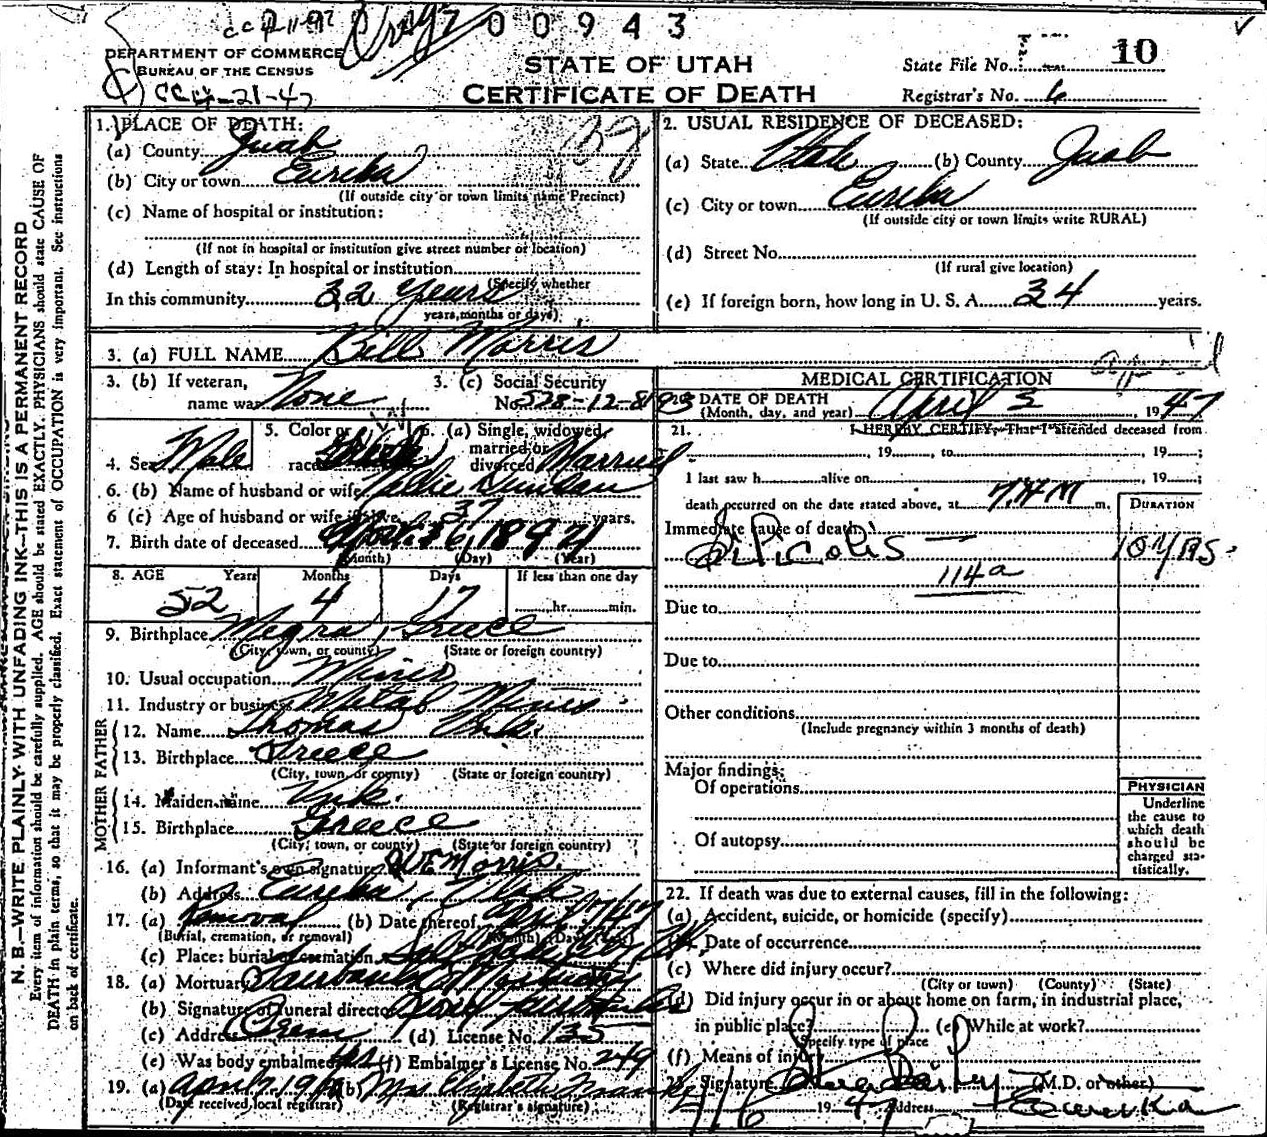 00943
DEPARTMENT OF COMMERCE
BUREAU OF THE CENSUS
CC 4-21-47
STATE OF UTAH
CERTIFICATE OF DEATH
State File No. 10
Registrar's No. 6
1. PLACE OF DEATH:
(a) County Juab
(b) City or town Eureka
(If outside city or town limits name Precinct)
(c) Name of hospital or institution:
(If not in hospital or institution give street number or location)
(d) Length of stay: In hospital or institution
(Specify whether
In this community 32 years
years, months or days)
2. USUAL RESIDENCE OF DECEASED:
(a) State Utah (b) County Juab
(c) City or town Eureka
(If outside city or town limits write RURAL)
(d) Street No.
(If rural give location)
(e) If foreign born, how long in U. S. A. 34 years.
3. (a) FULL NAME Bill Morris
3. (b) If veteran, name war None
3. (c) Social Security No. 528-12-8193
4. Sex Male
5. Color or race Greek
6. (a) Single, widowed, married or divorced Married
6. (b) Name of husband or wife Nellie Duncan
6 (c) Age of husband or wife if alive 37 years.
7. Birth date of deceased 16, 1894
(Month) (Day) (Year)
8. AGE Years Months Days If less than one day
52 4 17 hr. min.
9. Birthplace Megra, Greece
(City, town, or county) (State or foreign country)
10. Usual occupation Miner
11. Industry or business Metal Mines
FATHER
12. Name Thomas Unk.
13. Birthplace Greece
(City, town, or county) (State or foreign country)
MOTHER
14. Maiden name Unk.
15. Birthplace Greece
(City, town, or county) (State or foreign country)
16. (a) Informant's own signature Morris
(b) Address Eureka, Utah
17. (a) Removal (b) Date thereof April 7 47
(Burial, cremation, or removal) (Month) (Day) (Year)
(c) Place: burial or cremation Salt Lake
18. (a) Mortuary
(b) Signature of funeral director
(c) Address (d) License No. 135
(e) Was body embalmed yes (f) Embalmer's License No. 249
19. (a) April 7, 19 (b) Mrs Elizabeth
(Date received local registrar) (Registrar's signature)
MEDICAL CERTIFICATION
20. DATE OF DEATH
(Month, day, and year) April 3, 1947
21. I HEREBY CERTIFY, That I attended deceased from
, 19 , to , 19 ;
I last saw h alive on , 19 ;
death occurred on the date stated above, at m.
DURATION
Immediate cause of death
Silicosis 10 yrs.
114a
Due to
Due to
Other conditions
(Include pregnancy within 3 months of death)
Major findings:
Of operations
Of autopsy
PHYSICIAN
Underline
the cause to
which death
should be
charged sta-
tistically.
22. If death was due to external causes, fill in the following:
(a) Accident, suicide, or homicide (specify)
Date of occurrence
(c) Where did injury occur?
(City or town) (County) (State)
(d) Did injury occur in or about home on farm, in industrial place,
in public place? (e) While at work?
(Specify type of place
(f) Means of injury
23. Signature (M.D. or other)
4/16 1947 Address Eureka
N. B.—WRITE PLAINLY WITH UNFADING INK—THIS IS A PERMANENT RECORD
Every item of information should be carefully supplied. AGE should be stated EXACTLY. PHYSICIANS should state CAUSE OF
DEATH in plain terms, so that it may be properly classified. Exact statement of OCCUPATION is very important. See instructions
on back of certificate.